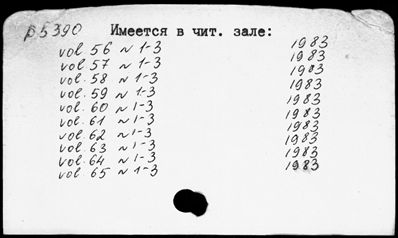 p5390 Имеется в чит. зале:
vol 56 N 1-3 1983
vol. 57 N 1-3 1983
vol. 58 N 1-3 1983
vol. 59 N 1-3 1983
vol. 60 N 1-3 1983
vol. 61 N 1-3 1983
vol. 62 N 1-3 1983
vol. 63 N 1-3 1983
vol. 64 N 1-3 1983
vol. 65 N 1-3 1983